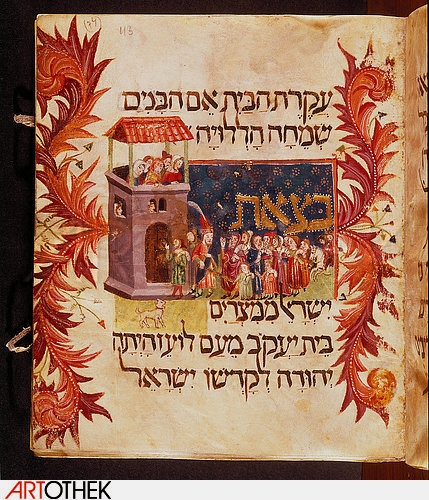 113
עקרת הבית אם הבנים
שמחה הללויה
בצאת
ישראל ממצרים
בית יעקב מעם לועז היתה
יהודה לקדשו ישראל
ARTOTHEK